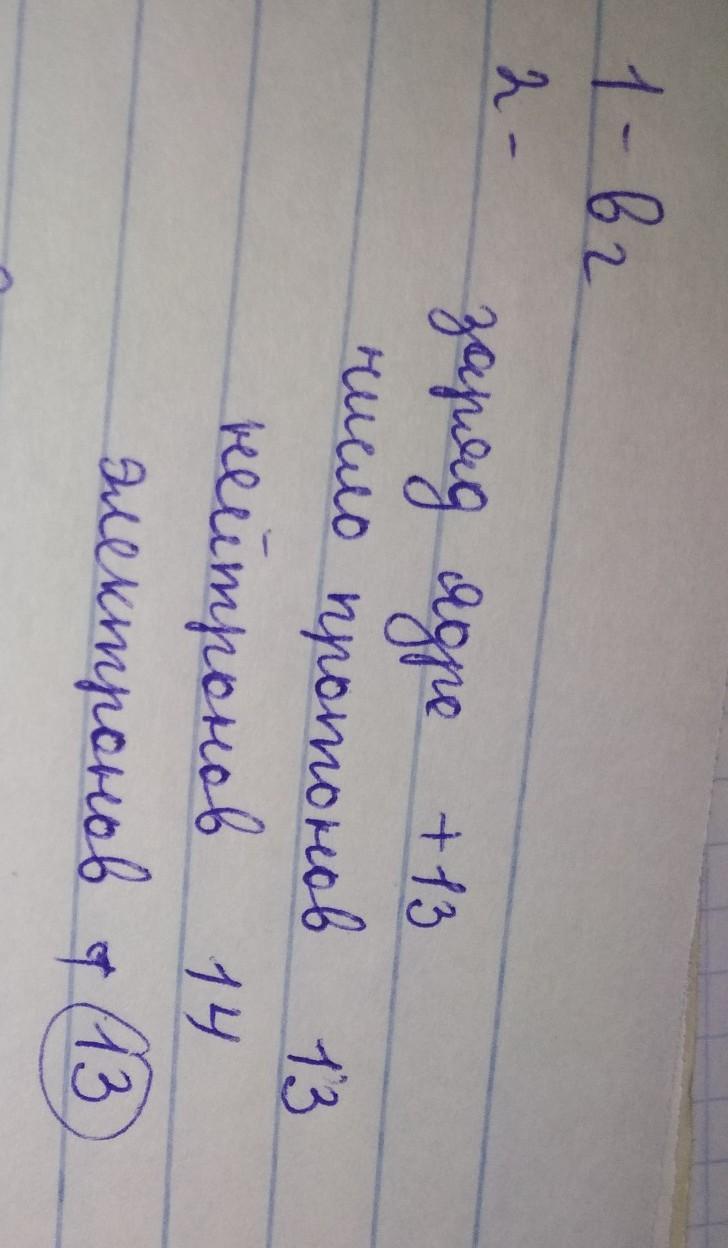 1 - вг
2 -
заряд ядра +13
число протонов 13
нейтронов 14
электронов 13